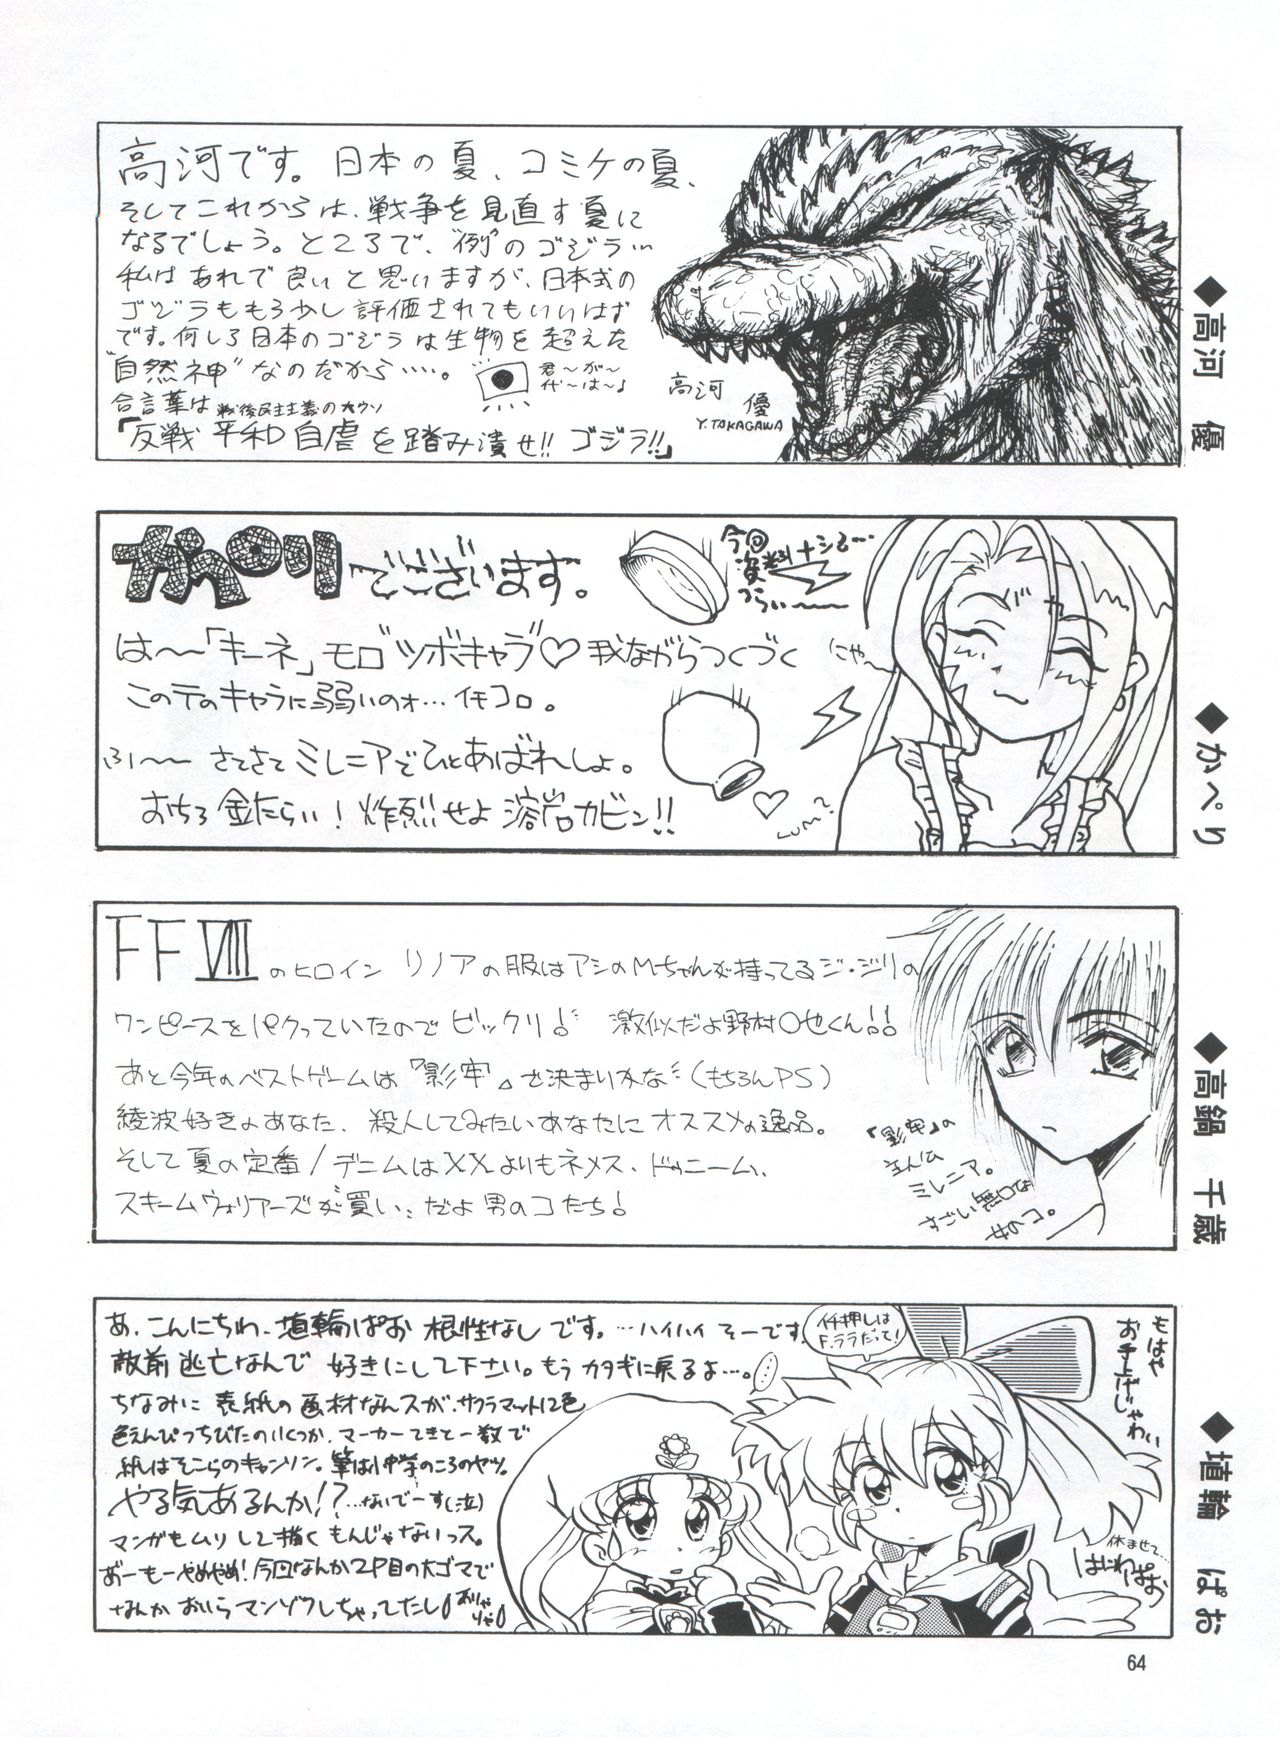 高河です。日本の夏、コミケの夏、
そしてこれからは、戦争を見直す夏に
なるでしょう。ところで、"例"のゴジラ…
私はあれで良いと思いますが、日本式の
ゴジラももう少し評価されてもいいはず
です。何しろ日本のゴジラは生物を超えた
"自然神"なのだから……。
君〜が〜
代〜は〜♪
合言葉は 戦後民主主義の大ウソ
「反戦 平和 自虐を踏み潰せ!! ゴジラ!!」
高河 優
Y.TAKAGAWA
◆高河 優
かぺりでございます。
は〜〜「キーネ」モロツボキャラ♡我ながらつくづく
このテのキャラに弱いのォ…イモコロ。
ふぃ〜〜 さてさてミレニアでひとあばれしょ。
おちろ金たらい！炸烈せよ溶岩カビン!!
今回
資料ナシる…
つらい〜〜
にゃ〜
◆かぺり
FF Ⅷ のヒロイン リノアの服はアシのMちゃんが持ってるジ・ジリの
ワンピースをパクっていたのでビックリ! 激似だよ野村〇也くん!!
あと今年のベストゲームは『影牢』で決まいかな（もちろんPS）
綾波好きのあなた、殺人してみたいあなたにオススメの逸品。
そして夏の定番/デニムはXXよりもネメス、ドゥニーム、
スキームウォリアーズが買い、だよ男のコたち!
『影牢』の
主人公
ミレニア。
すごい無口な
女のコ。
◆高鍋 千歳
あ、こんにちわ、埴輪ぱお 根性なしです。…ハイハイ そーです。
敵前逃亡なんで 好きにして下さい。もう カタギに戻るよ…。
ちなみに 表紙の画材なんスが、サクラマット12色
色えんぴつちびたのいくつか、マーカーてきとー数で
紙はそこらのキャンソン。筆は小中学のころのヤツ。
やる気あるんか!? …ないでーす(泣)
マンガもムリして描くもんじゃないっス。
あーもーやめやめ! 今回なんか2P目の大ゴマで
なんか おいらマンゾクしちゃってたし
ありゃりゃ
イチ押しは
F.ララだって!
……
もはや
お手上げじゃわい
休ませて…
はにわぱお
◆埴輪 ぱお
64